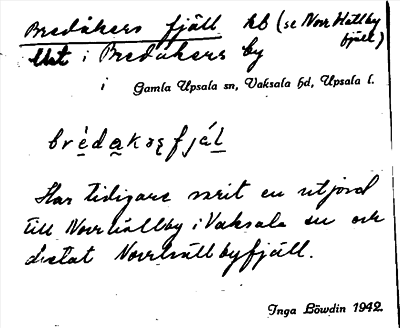 Bredåkers fjäll hb (se Norr Hällby
fjäll)
Ust i Bredåkers by
i Gamla Upsala sn, Vaksala hd, Upsala l.
Har tidigare varit en utjord
till Norrhällby i Vaksala sn och
d etat Norrhällbyfjäll.
Inga Löwdin 1942.